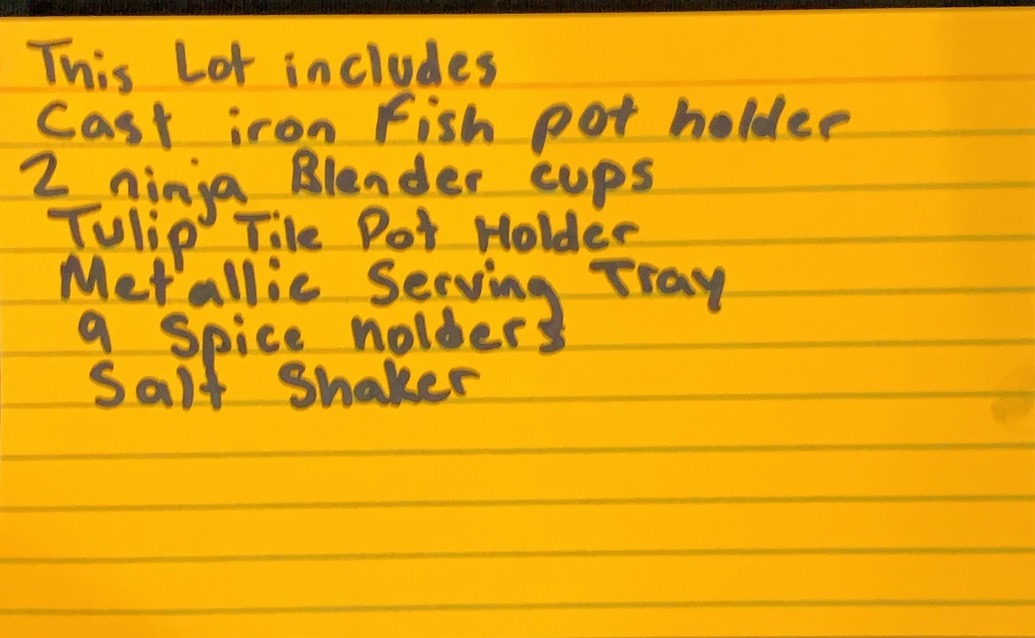 This Lot includes
Cast iron Fish pot holder
2 ninja Blender cups
Tulip Tile Pot Holder
Metallic Serving Tray
9 Spice holders
Salt Shaker